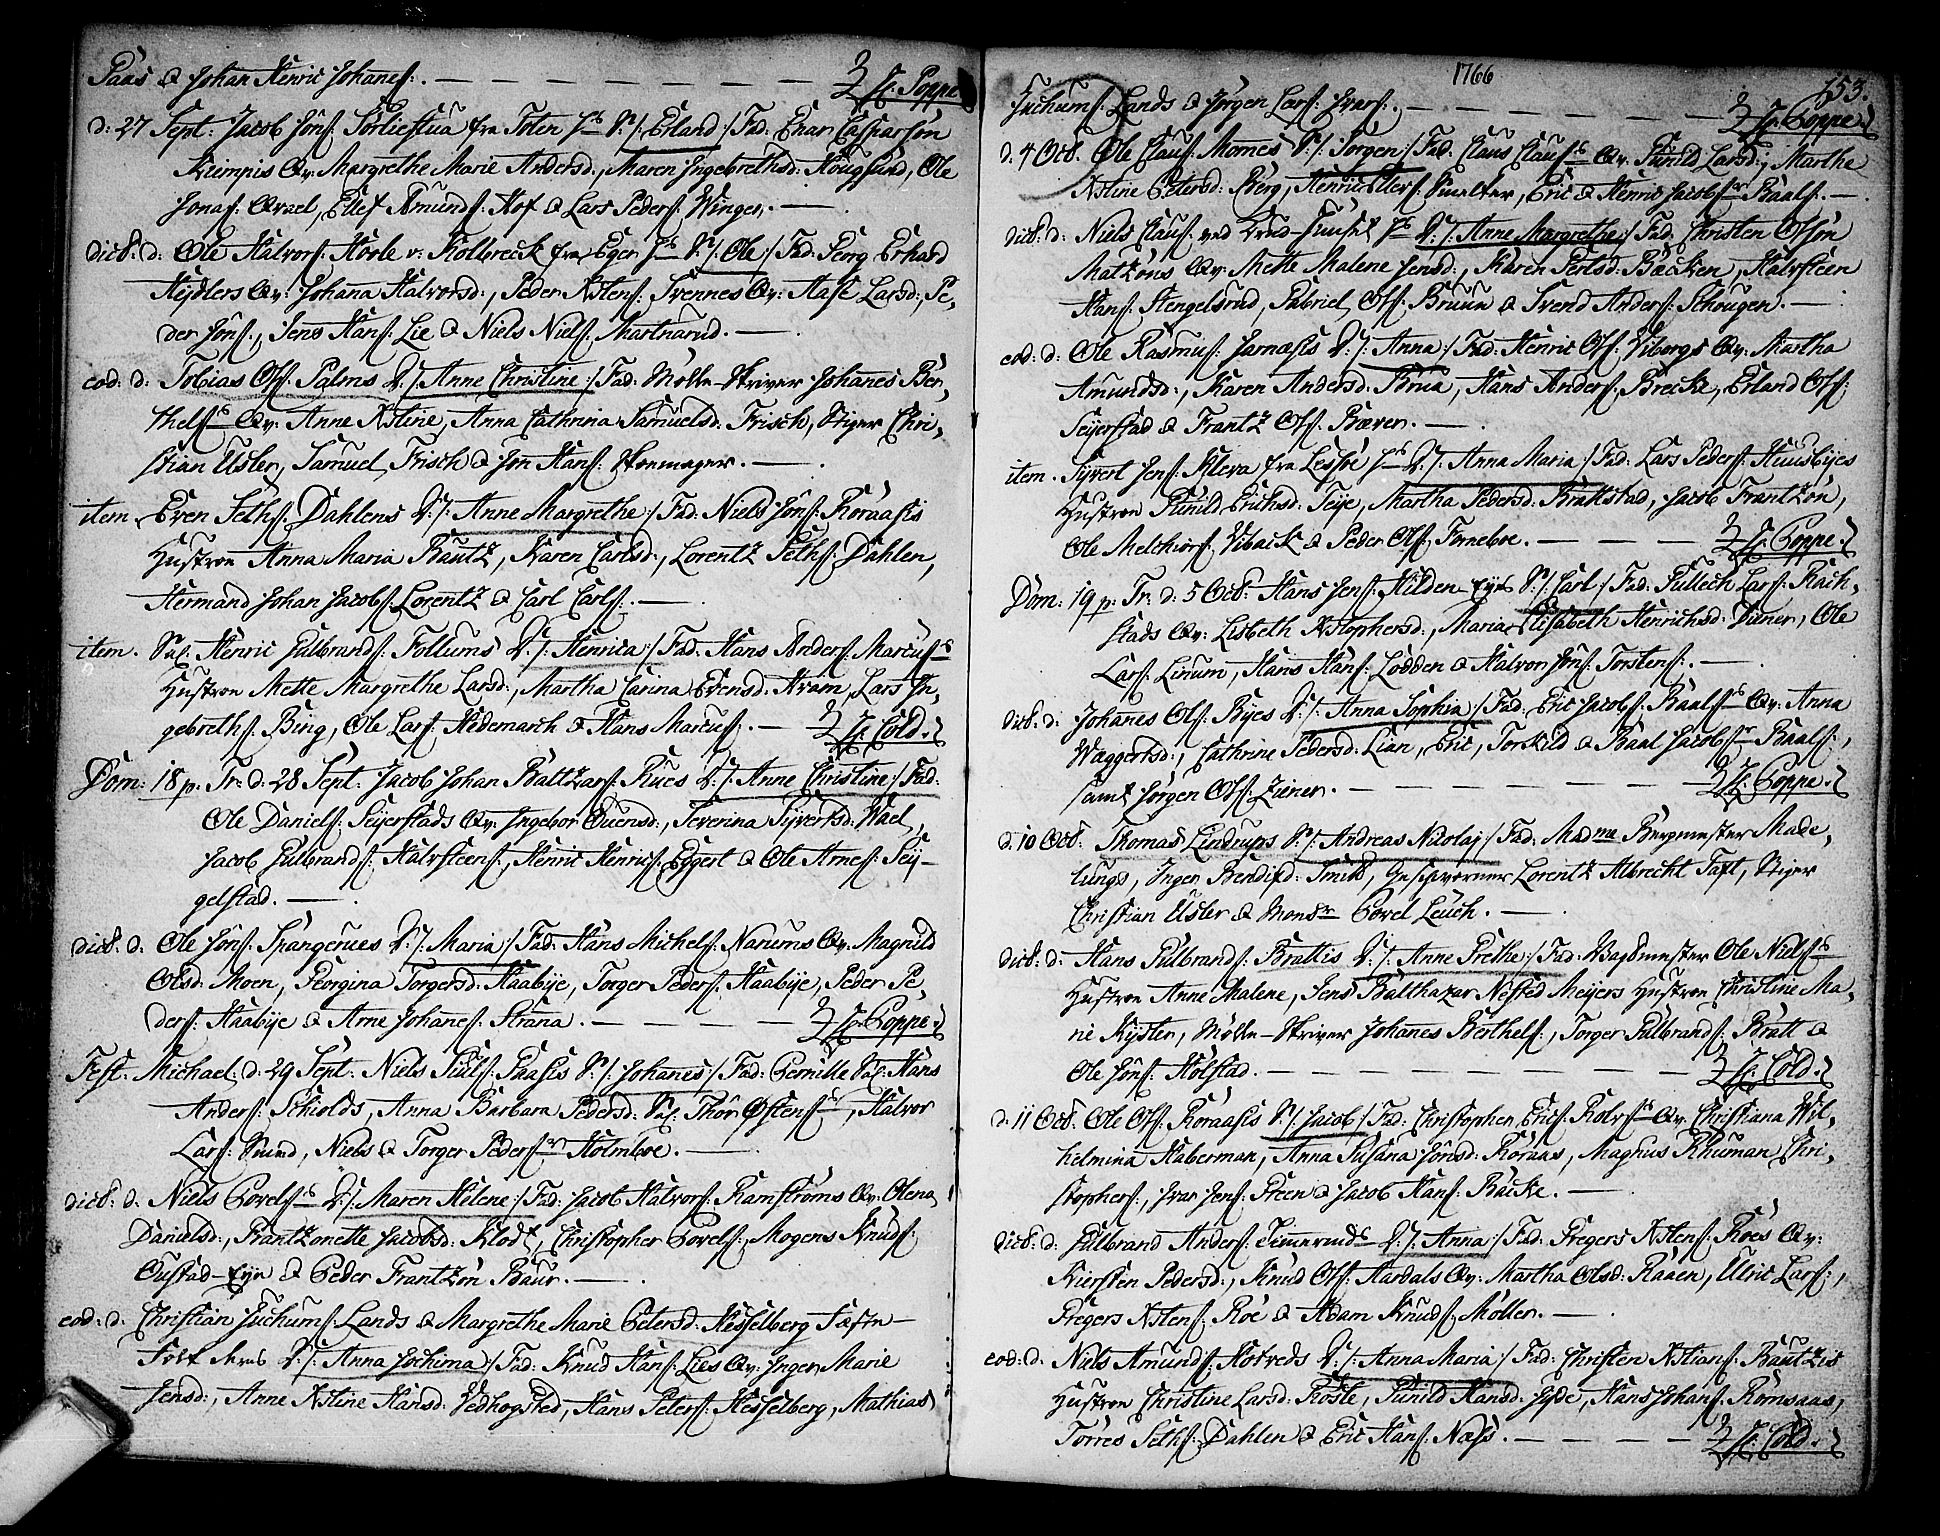 Paas & Johan Henric Johanes:. — — — — Hr: Poppe
d: 27 Sept: Jacob Jóns: Sórliestua fra Toten S:/: Erland:/ Fad: Enar Casparsón
Kiempis Qv: Margrethe Marie Andersd:, Maren Ingebrethsd: Hougsund, Ole
Jonas: Qvael, Ellef Amunds: Hof & Lars Peders: Winger. —
dict: d: Ole Halvors: Hórle v: Kolbreck fra Eger S:/: Ole:/ Fad: Georg Erhard
Heydlers Qv: Johana Halvorsd:, Peder Xstens: Svennes Qv: Aase Larsd:, Pe-
der Jóns:, Jens Hans: Lie & Niels Niels: Martnarud. —
eod: d: Tobias Ols: Palms D:/: Anne Christine:/ Fad: Mólle-Skriver Johanes Ber-
thels: Qv: Anne Xstine, Anna Cathrina Samuelsd: Frisch, Stiger Chri-
stian Usler, Samuel Frisch & Jon Hans: Skomager. —
item. Even Seths: Dahlens D:/: Anne Margrethe:/ Fad: Niels Jóns: Koraasis
Hustroe Anna Maria Bautz, Karen Carlsd:, Lorentz Seths: Dahlen,
Hermand Johan Jacobs: Lorentz & Carl Carls:. —
item. Sal: Henric Gulbrands: Follums D:/: Henrica:/ Fad: Hans Anders: Marcus:
Hustroe Mette Margrethe Larsd:, Martha Carina Evensd: Hvam, Lars In-
gebreths: Bing, Ole Lars: Hedemarch & Hans Marcus:. — Hr: Cold.
Dom: 18 p. Tr: d: 28 Sept: Jacob Johan Baltzars: Rues D:/: Anne Christine:/ Fad:
Ole Daniels: Seyerstads Qv: Ingebor Evensd:, Severina Syvertsd: Wael,
Jacob Gulbrands: Halvsteens, Henric Henrics: Eggert & Ole Arnes: Sey-
gelstad. —
dict: d: Ole Jóns: Spangerues D:/: Maria:/ Fad: Hans Michels: Narums Qv: Magnild
Olsd: Moen, Georgina Torgersd: Haabye, Torger Peders: Haabye, Peder Pe-
ders: Haabye & Arne Johanes: Strana. — — — — Hr: Poppe.
Fest. Michael: d: 29 Sept: Niels Juls: Paasis S:/: Johanes:/ Fad: Pernille Sal: Hans
Anders: Schiolds, Anna Barbara Pedersd: Sal: Thór Østens:, Halvor
Lars: Smed, Niels & Torger Peders: Holmboe. —
dict: d: Niels Povels: D:/: Maren Helene:/ Fad: Jacob Halvors: Ramstróms Qv: Olena
Danielsd:, Frantzonette Jacobsd: Klodt, Christopher Povels:, Mogens Knuds:
Gustad-Eye & Peder Frantzón Baur. —
eod: d: Christian Juchums: Lands & Margrethe Marie Petersd: Hesselberg
D:/: Anna Jochima:/ Fad: Knud Hans: Lies Qv: Inger Marie
Jensd:, Anne Xstine Hansd: Vedhogsted, Hans Peters: Hesselberg, Mathias
1766
153.
Juchums: Lands & Jórgen Lars: Ivars:. — — — Hr: Poppe.
d. 4 Oct. Ole Claus: Momes S:/: Jórgen:/ Fad: Claus Claus: Qv: Gunild Larsd:, Marthe
Xstine Petersd: Berg, Henric Ellers: Smelter, Eric & Henric Jacobs: Baals:. —
dict: d: Niels Claus: ved Brud-Huuset D:/: Anne Margrethe:/ Fad: Christen Olsón
Matzons Qv: Mette Malene Jensd:, Karen Gertsd: Backen, Halvsteen
Hans: Hengelsrud, Gabriel Ols: Bruun & Svend Anders: Schougen. —
eod: d: Ole Rasmus: Jarnæsis D:/: Anna:/ Fad: Henric Ols: Viborgs Qv: Martha
Amundsd:, Karen Andersd: Berua, Hans Anders: Brecke, Erland Ols:
Seyerstad & Frantz Ols: Bæver. —
item. Syvert Jens: Kleva fra Lesióe D:/: Anna Maria:/ Fad: Lars Peders: Huusbyes
Hustroe Gunild Erichsd: Teye, Martha Pedersd: Brattstad, Jacob Frantzón,
Ole Melchiors: Viback & Peder Ols: Forneboe. — — — Hr: Poppe.
Dom: 19 p. Tr: d: 5 Oct: Hans Jens: Hilden-Eyes S:/: Carl:/ Fad: Gullech Lars: Rach-
stads Qv: Lisbeth Xstophersd:, Maria Elisabeth Henrichsd: Diener, Ole
Lars: Linum, Hans Hans: Lodden & Halvor Jóns: Torstens:. —
dict: d: Johanes Ols: Byes D:/: Anna Sophia:/ Fad: Eric Jacobs: Baals: Qv: Anna
Waggertsd:, Cathrine Pedersd: Lian, Eric, Torkild & Baal Jacobs: Baals:,
samt Jórgen Ols: Ziener. — — — — — Hr: Poppe.
d. 10 Oct. Thomas Lindrups S:/: Andreas Nicolaj:/ Fad: Madme Bergmester Made-
lungs, Inger Bendixd: Smid, Geschworner Lorentz Albrecht Fast, Stiger
Christian Usler & Monsr Povel Leuch. —
dict: d: Hans Gulbrands: Brattis D:/: Anne Grethe:/ Fad: Bagemester Ole Niels:
Hustroe Anne Malene, Jens Balthazar Nested Meyers Hustroe Christine Ma-
rie Kyster, Mólle-Skriver Johanes Berthels:, Torger Gulbrands: Bratt &
Ole Jóns: Holstad. — — — — — Hr: Cold.
d. 11 Oct. Ole Ols: Koraasis S:/: Jacob:/ Fad: Christopher Erics: Rolvs: Qv: Christiana Wil-
helmina Haberman, Anna Susana Jónsd: Koraas, Maghus Rhuman Chri-
stophers:, Ivar Jens: Green & Jacob Hans: Backe. —
dict: d: Gulbrand Anders: Timeruds D:/: Anna:/ Fad: Gregers Xstens: Roes Qv:
Kiersten Pedersd:, Knud Ols: Aardals Qv: Martha Olsd: Raaen, Ulric Lars:,
Gregers Xstens: Roe & Adam Knuds: Móller. —
eod: d. Niels Amunds: Hotveds D:/: Anna Maria:/ Fad: Christen Xstians: Bautzis
Hustroe Christine Larsd: Foste, Gunild Hansd: Hyde, Hans Johans: Komsaas,
Torres Seths: Dahlen & Eric Hans: Næss. — — — — Hr: Cold.